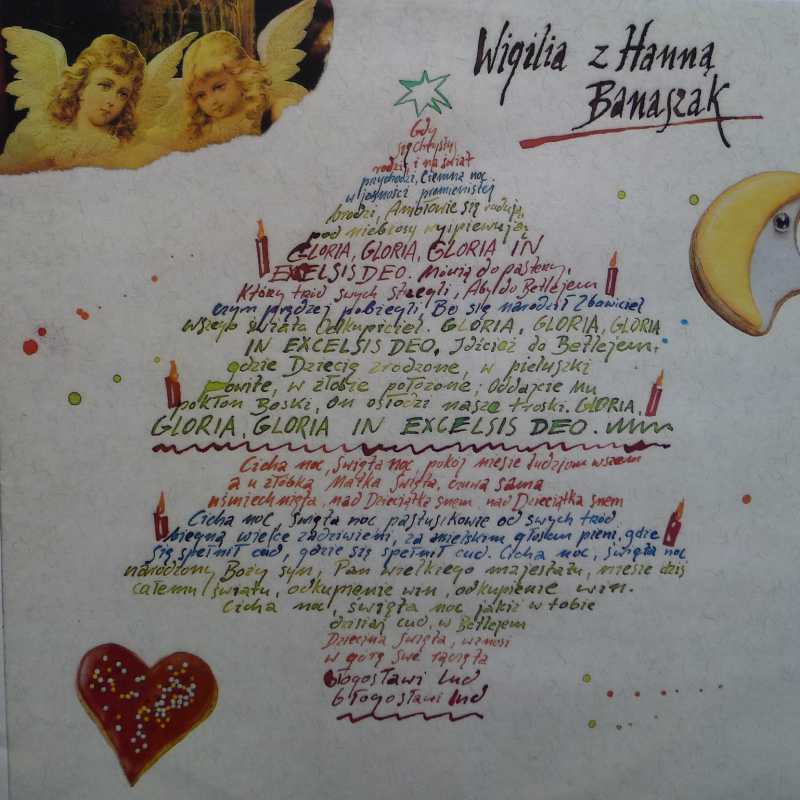 Wigilia z Hanną
Banaszak
Gdy
się Chrystus
rodzi, i na świat
przychodzi, Ciemna noc
w jasności promienistej
brodzi, Aniołowie się radują,
pod niebiosy wyśpiewują:
GLORIA, GLORIA, GLORIA IN
EXCELSIS DEO. Mówią do pasterzy,
Którzy trzód swych strzegli, Aby do Betlejem
czym prędzej pobiegli, Bo się narodził Zbawiciel
Wszego świata Odkupiciel. GLORIA, GLORIA, GLORIA
IN EXCELSIS DEO. Idźcież do Betlejem,
gdzie Dziecię zrodzone, w pieluszki
powite, w żłobie położone; Oddajcie Mu
pokłon Boski, On osłodzi nasze troski. GLORIA,
GLORIA, GLORIA IN EXCELSIS DEO.
Cicha noc, święta noc, pokój niesie ludziom wszem
a u żłóbka Matka Święta, czuwa sama
uśmiechnięta, nad Dzieciątka snem, nad Dzieciątka snem
Cicha noc, święta noc pastuszkowie od swych trzód
biegną wielce zadziwieni, za anielskim głosem pieni, gdzie
się spełnił cud, gdzie się spełnił cud. Cicha noc, święta noc
narodzony Boży Syn, Pan wielkiego majestatu, niesie dziś
całemu światu, odkupienie win, odkupienie win.
Cicha noc, święta noc jakiż w tobie
dzisiaj cud, w Betlejem
Dziecina Święta, wznosi
w górę swe rączęta
błogosławi lud
błogosławi lud